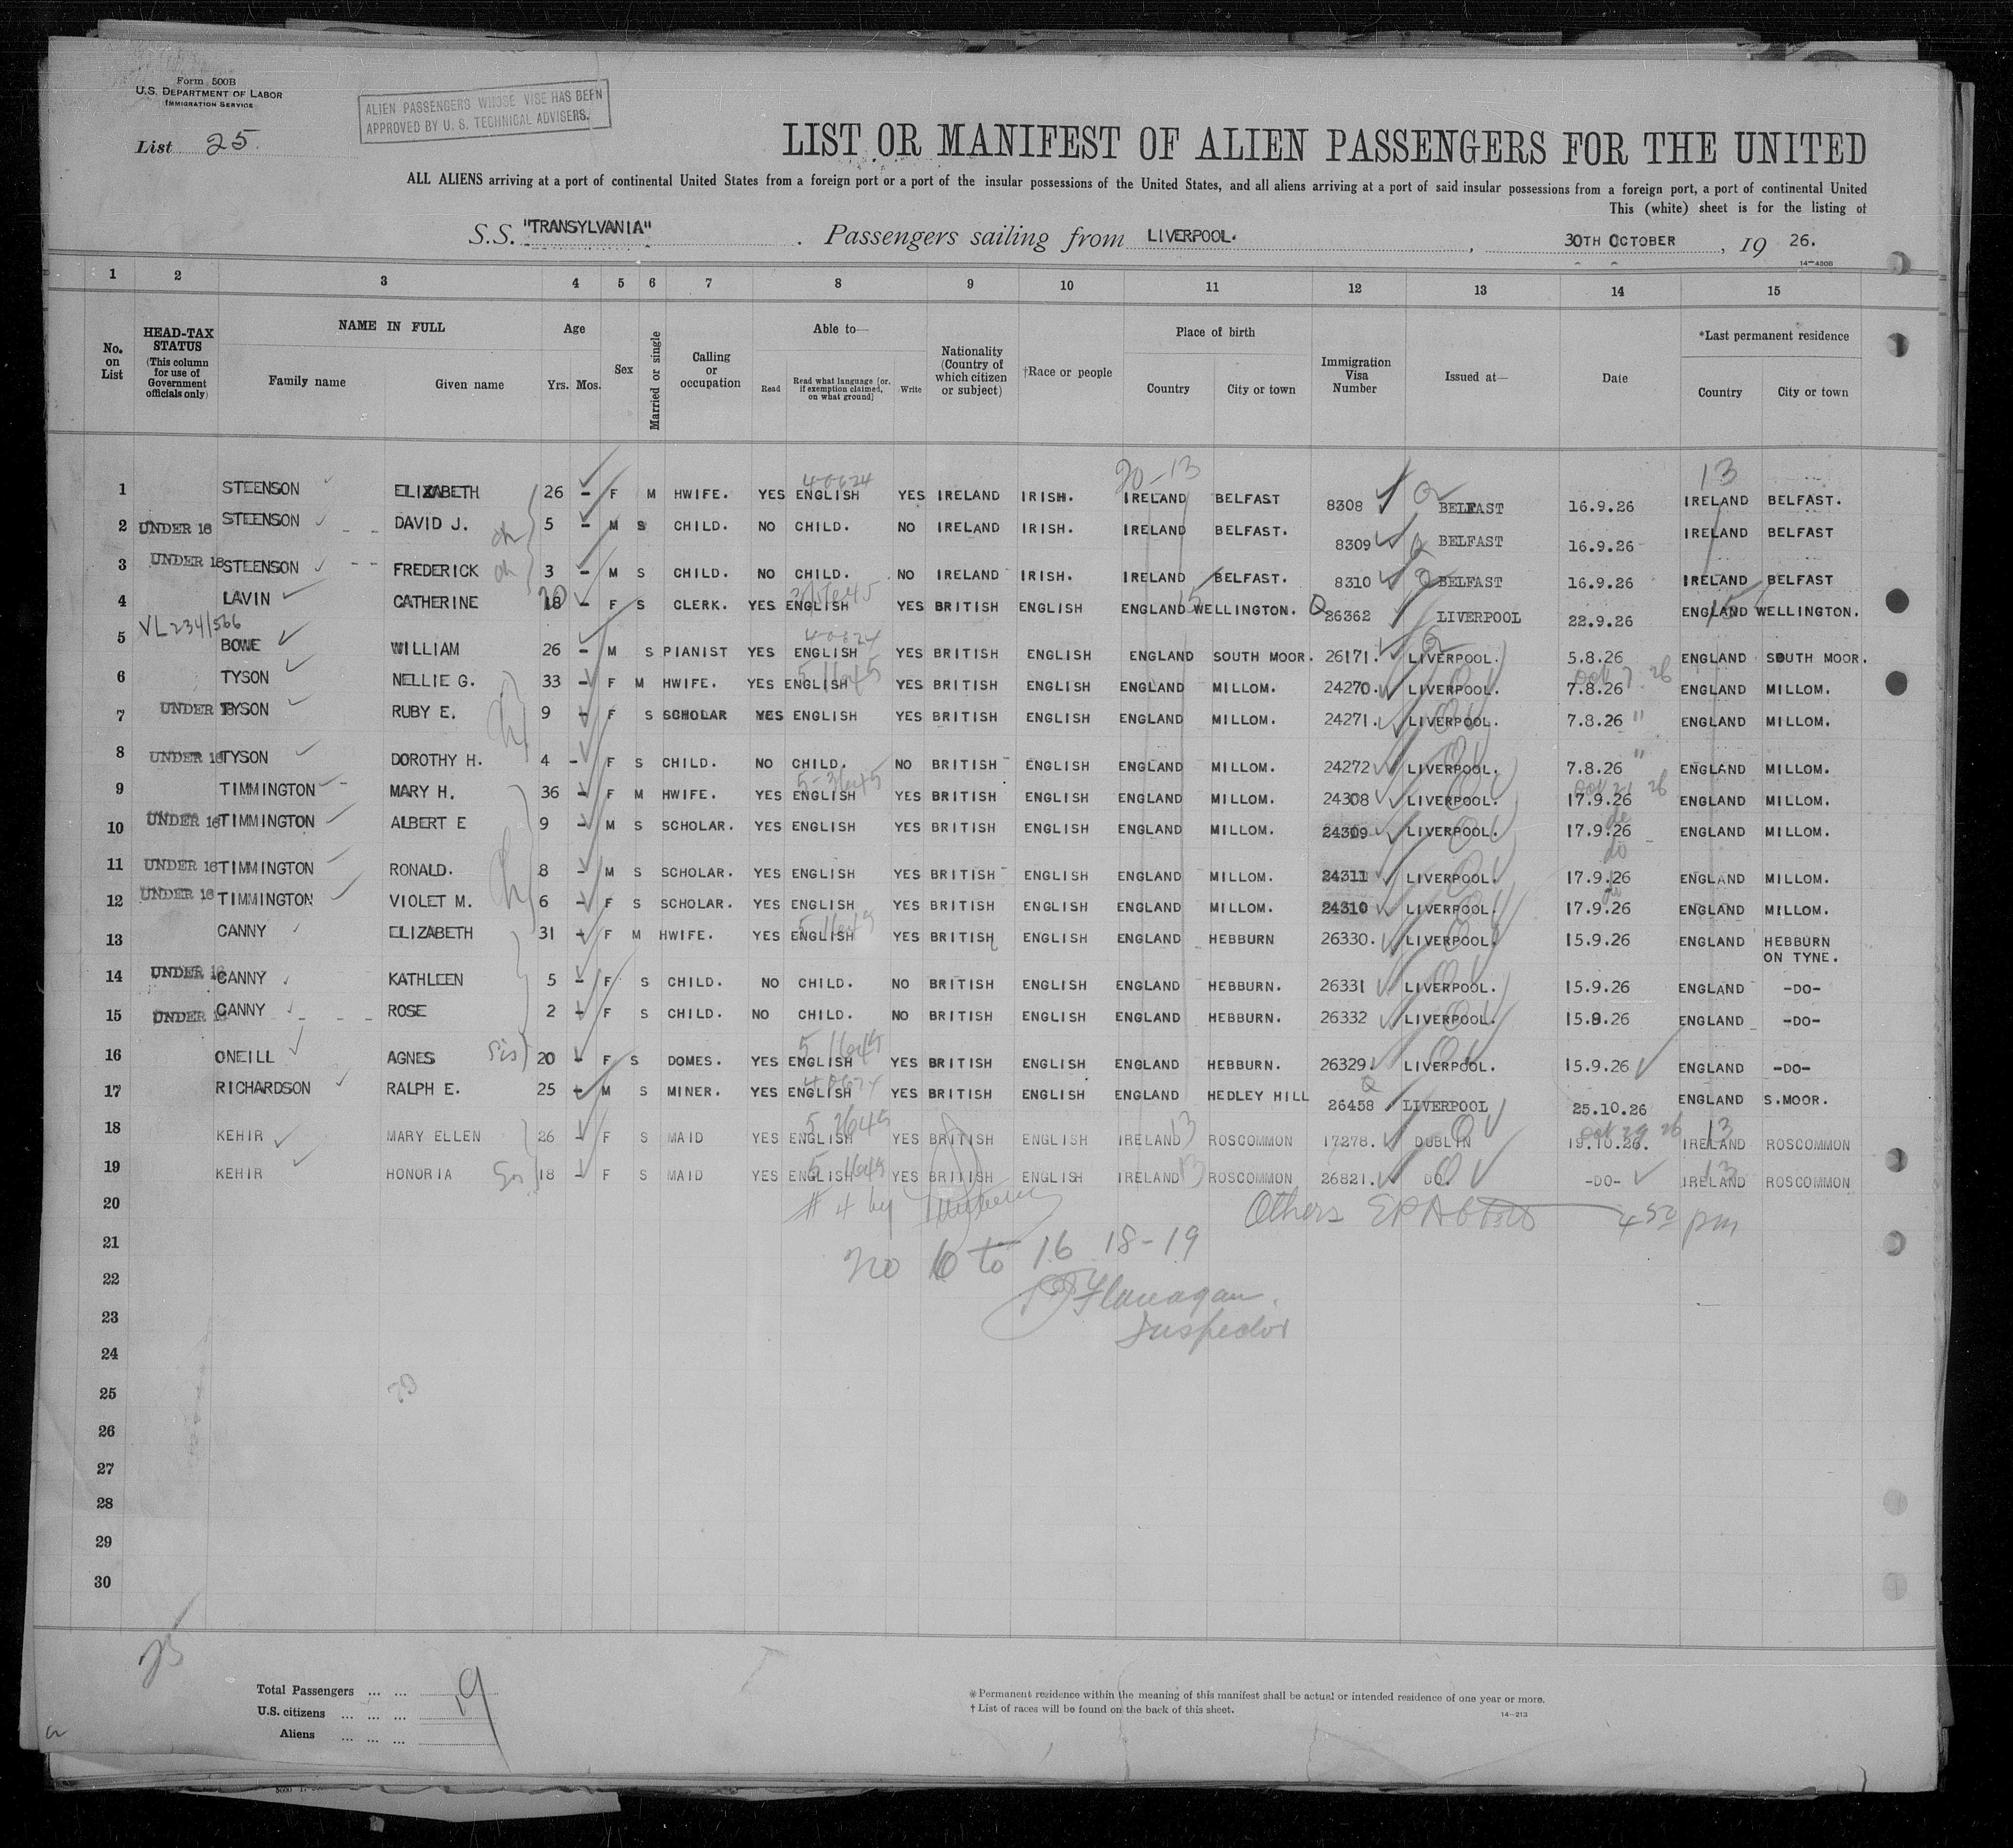 Form 500B
U.S. DEPARTMENT OF LABOR
IMMIGRATION SERVICE
ALIEN PASSENGERS WHOSE VISE HAS BEEN
APPROVED BY U. S. TECHNICAL ADVISERS.
List 25
LIST OR MANIFEST OF ALIEN PASSENGERS FOR THE UNITED
ALL ALIENS arriving at a port of continental United States from a foreign port or a port of the insular possessions of the United States, and all aliens arriving at a port of said insular possessions from a foreign port, a port of continental United
This (white) sheet is for the listing of
S.S. "TRANSYLVANIA" . Passengers sailing from LIVERPOOL. , 30TH OCTOBER , 19 26.
14-430B
1 2 3 4 5 6 7 8 9 10 11 12 13 14 15
No. on List HEAD-TAX STATUS (This column for use of Government officials only) NAME IN FULL Family name Given name Age Yrs. Mos. Sex Married or single Calling or occupation Able to— Read Read what language [or, if exemption claimed, on what ground] Write Nationality (Country of which citizen or subject) †Race or people Place of birth Country City or town Immigration Visa Number Issued at— Date *Last permanent residence Country City or town
4-0624 20-13 13
1 STEENSON ELIZABETH 26 - F M HWIFE. YES ENGLISH YES IRELAND IRISH. IRELAND BELFAST 8308 BELFAST 16.9.26 IRELAND BELFAST.
2 UNDER 16 STEENSON DAVID J. ch 5 - M S CHILD. NO CHILD. NO IRELAND IRISH. IRELAND BELFAST. 8309 BELFAST 16.9.26 IRELAND BELFAST
3 UNDER 16 STEENSON FREDERICK ch 3 - M S CHILD. NO CHILD. NO IRELAND IRISH. IRELAND BELFAST. 8310 BELFAST 16.9.26 IRELAND BELFAST
4 LAVIN CATHERINE 18 - F S CLERK. YES ENGLISH YES BRITISH ENGLISH ENGLAND 15 WELLINGTON. 26362 LIVERPOOL 22.9.26 ENGLAND 15 WELLINGTON.
VL 234/566
4-0624
5 BOWE WILLIAM 26 - M S PIANIST YES ENGLISH YES BRITISH ENGLISH ENGLAND SOUTH MOOR. 26171. LIVERPOOL. 5.8.26 ENGLAND SOUTH MOOR.
Oct 7 26
6 TYSON NELLIE G. 33 - F M HWIFE. YES ENGLISH YES BRITISH ENGLISH ENGLAND MILLOM. 24270. LIVERPOOL. 7.8.26 ENGLAND MILLOM.
7 UNDER 16 TYSON RUBY E. 9 - F S SCHOLAR YES ENGLISH YES BRITISH ENGLISH ENGLAND MILLOM. 24271. LIVERPOOL. 7.8.26 " ENGLAND MILLOM.
8 UNDER 16 TYSON DOROTHY H. 4 - F S CHILD. NO CHILD. NO BRITISH ENGLISH ENGLAND MILLOM. 24272 LIVERPOOL. 7.8.26 " ENGLAND MILLOM.
9 TIMMINGTON MARY H. 36 - F M HWIFE. YES ENGLISH YES BRITISH ENGLISH ENGLAND MILLOM. 24308 LIVERPOOL. 17.9.26 ENGLAND MILLOM.
10 UNDER 16 TIMMINGTON ALBERT E 9 - M S SCHOLAR. YES ENGLISH YES BRITISH ENGLISH ENGLAND MILLOM. 24309 LIVERPOOL. 17.9.26 ENGLAND MILLOM.
do
11 UNDER 16 TIMMINGTON RONALD. 8 - M S SCHOLAR. YES ENGLISH YES BRITISH ENGLISH ENGLAND MILLOM. 24311 LIVERPOOL. 17.9.26 ENGLAND MILLOM.
12 UNDER 16 TIMMINGTON VIOLET M. 6 - F S SCHOLAR. YES ENGLISH YES BRITISH ENGLISH ENGLAND MILLOM. 24310 LIVERPOOL. 17.9.26 ENGLAND MILLOM.
13 CANNY ELIZABETH 31 - F M HWIFE. YES ENGLISH YES BRITISH ENGLISH ENGLAND HEBBURN 26330. LIVERPOOL. 15.9.26 ENGLAND HEBBURN
ON TYNE.
14 UNDER 16 CANNY KATHLEEN 5 - F S CHILD. NO CHILD. NO BRITISH ENGLISH ENGLAND HEBBURN. 26331 LIVERPOOL. 15.9.26 ENGLAND -DO-
15 UNDER 16 CANNY ROSE 2 - F S CHILD. NO CHILD. NO BRITISH ENGLISH ENGLAND HEBBURN. 26332 LIVERPOOL. 15.9.26 ENGLAND -DO-
16 ONEILL AGNES Sis 20 - F S DOMES. YES ENGLISH YES BRITISH ENGLISH ENGLAND HEBBURN. 26329. LIVERPOOL. 15.9.26 ENGLAND -DO-
17 RICHARDSON RALPH E. 25 - M S MINER. YES ENGLISH YES BRITISH ENGLISH ENGLAND HEDLEY HILL 26458 LIVERPOOL 25.10.26 ENGLAND S.MOOR.
Oct 29 26
18 KEHIR MARY ELLEN 26 - F S MAID YES ENGLISH YES BRITISH ENGLISH IRELAND 13 ROSCOMMON 17278. DUBLIN 19.10.26. IRELAND 13 ROSCOMMON
19 KEHIR HONORIA Sis 18 - F S MAID YES ENGLISH YES BRITISH ENGLISH IRELAND 13 ROSCOMMON 26821. DO. -DO- IRELAND 13 ROSCOMMON
20 # 4 by Others 4 50 pm
21 no 6 to 16 18-19
22 Flanagan.
23 Inspector
24
25
26
27
28
29
30
25
Total Passengers ... ... 19
U.S. citizens ... ... ...
Aliens ... ... ...
* Permanent residence within the meaning of this manifest shall be actual or intended residence of one year or more.
† List of races will be found on the back of this sheet.
14-213